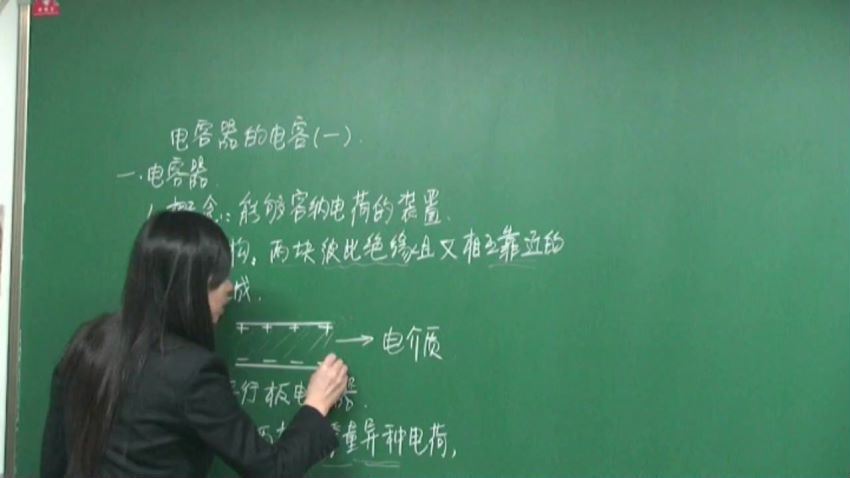 电容器的电容(一).
一.电容器.
1.概念:能够容纳电荷的装置.
构:两块彼此绝缘且又相互靠近的
成.
+ + + +
→ 电介质
- - - -
行板电 器.
两 等量异种电荷,